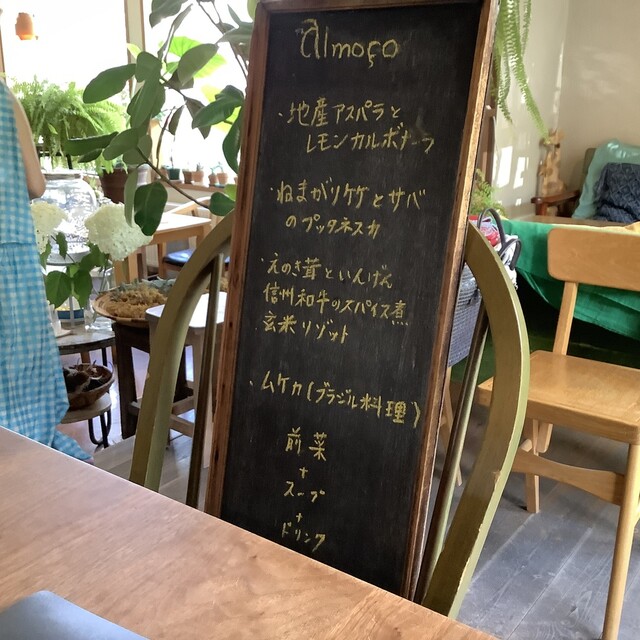 almoço
・地産アスパラと
レモンカルボナーラ
・ねまがりタケとサバ
のプッタネスカ
・えのき茸といんげん
信州和牛のスパイス煮
玄米リゾット
・ムケカ(ブラジル料理)
前菜
+
スープ
+
ドリンク